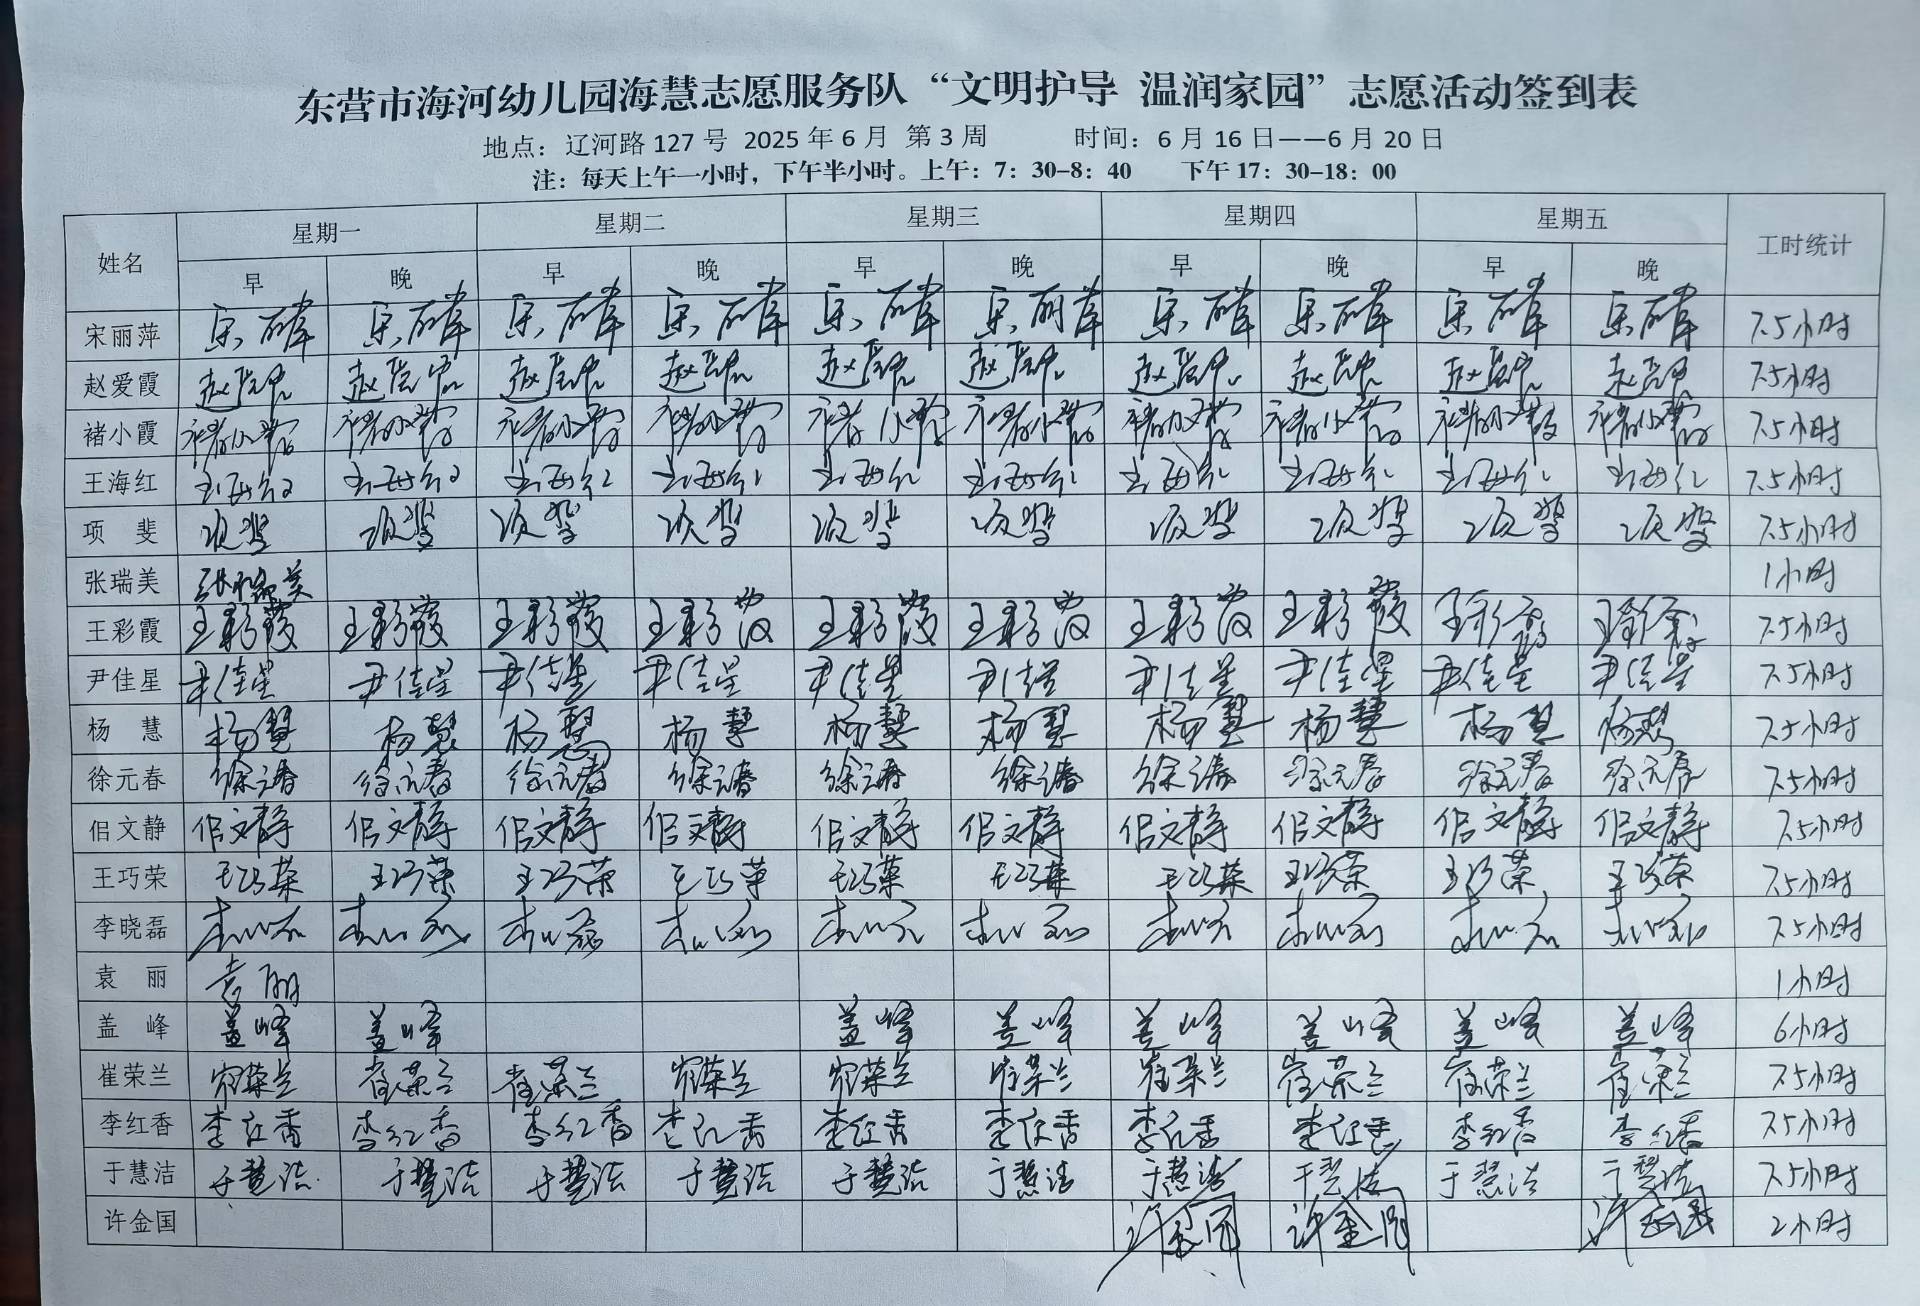 东营市海河幼儿园海慧志愿服务队“文明护导 温润家园”志愿活动签到表
地点：辽河路 127 号 2025 年 6 月 第 3 周 时间：6 月 16 日——6 月 20 日
注：每天上午一小时，下午半小时。上午：7：30-8：40 下午 17：30-18：00
姓名 星期一 星期二 星期三 星期四 星期五 工时统计
早 晚 早 晚 早 晚 早 晚 早 晚
宋丽萍 宋丽萍 宋丽萍 宋丽萍 宋丽萍 宋丽萍 宋丽萍 宋丽萍 宋丽萍 宋丽萍 宋丽萍 7.5小时
赵爱霞 赵爱霞 赵爱霞 赵爱霞 赵爱霞 赵爱霞 赵爱霞 赵爱霞 赵爱霞 赵爱霞 赵爱霞 7.5小时
褚小霞 褚小霞 褚小霞 褚小霞 褚小霞 褚小霞 褚小霞 褚小霞 褚小霞 褚小霞 褚小霞 7.5小时
王海红 王海红 王海红 王海红 王海红 王海红 王海红 王海红 王海红 王海红 王海红 7.5小时
项 斐 项斐 项斐 项斐 项斐 项斐 项斐 项斐 项斐 项斐 项斐 7.5小时
张瑞美 张瑞美 1小时
王彩霞 王彩霞 王彩霞 王彩霞 王彩霞 王彩霞 王彩霞 王彩霞 王彩霞 王彩霞 王彩霞 7.5小时
尹佳星 尹佳星 尹佳星 尹佳星 尹佳星 尹佳星 尹佳星 尹佳星 尹佳星 尹佳星 尹佳星 7.5小时
杨 慧 杨慧 杨慧 杨慧 杨慧 杨慧 杨慧 杨慧 杨慧 杨慧 杨慧 7.5小时
徐元春 徐元春 徐元春 徐元春 徐元春 徐元春 徐元春 徐元春 徐元春 徐元春 徐元春 7.5小时
佀文静 佀文静 佀文静 佀文静 佀文静 佀文静 佀文静 佀文静 佀文静 佀文静 佀文静 7.5小时
王巧荣 王巧荣 王巧荣 王巧荣 王巧荣 王巧荣 王巧荣 王巧荣 王巧荣 王巧荣 王巧荣 7.5小时
李晓磊 李晓磊 李晓磊 李晓磊 李晓磊 李晓磊 李晓磊 李晓磊 李晓磊 李晓磊 李晓磊 7.5小时
袁 丽 袁丽 1小时
盖 峰 盖峰 盖峰 盖峰 盖峰 盖峰 盖峰 盖峰 盖峰 6小时
崔荣兰 崔荣兰 崔荣兰 崔荣兰 崔荣兰 崔荣兰 崔荣兰 崔荣兰 崔荣兰 崔荣兰 崔荣兰 7.5小时
李红香 李红香 李红香 李红香 李红香 李红香 李红香 李红香 李红香 李红香 李红香 7.5小时
于慧洁 于慧洁 于慧洁 于慧洁 于慧洁 于慧洁 于慧洁 于慧洁 于慧洁 于慧洁 于慧洁 7.5小时
许金国 许金国 许金国 许金国 2小时